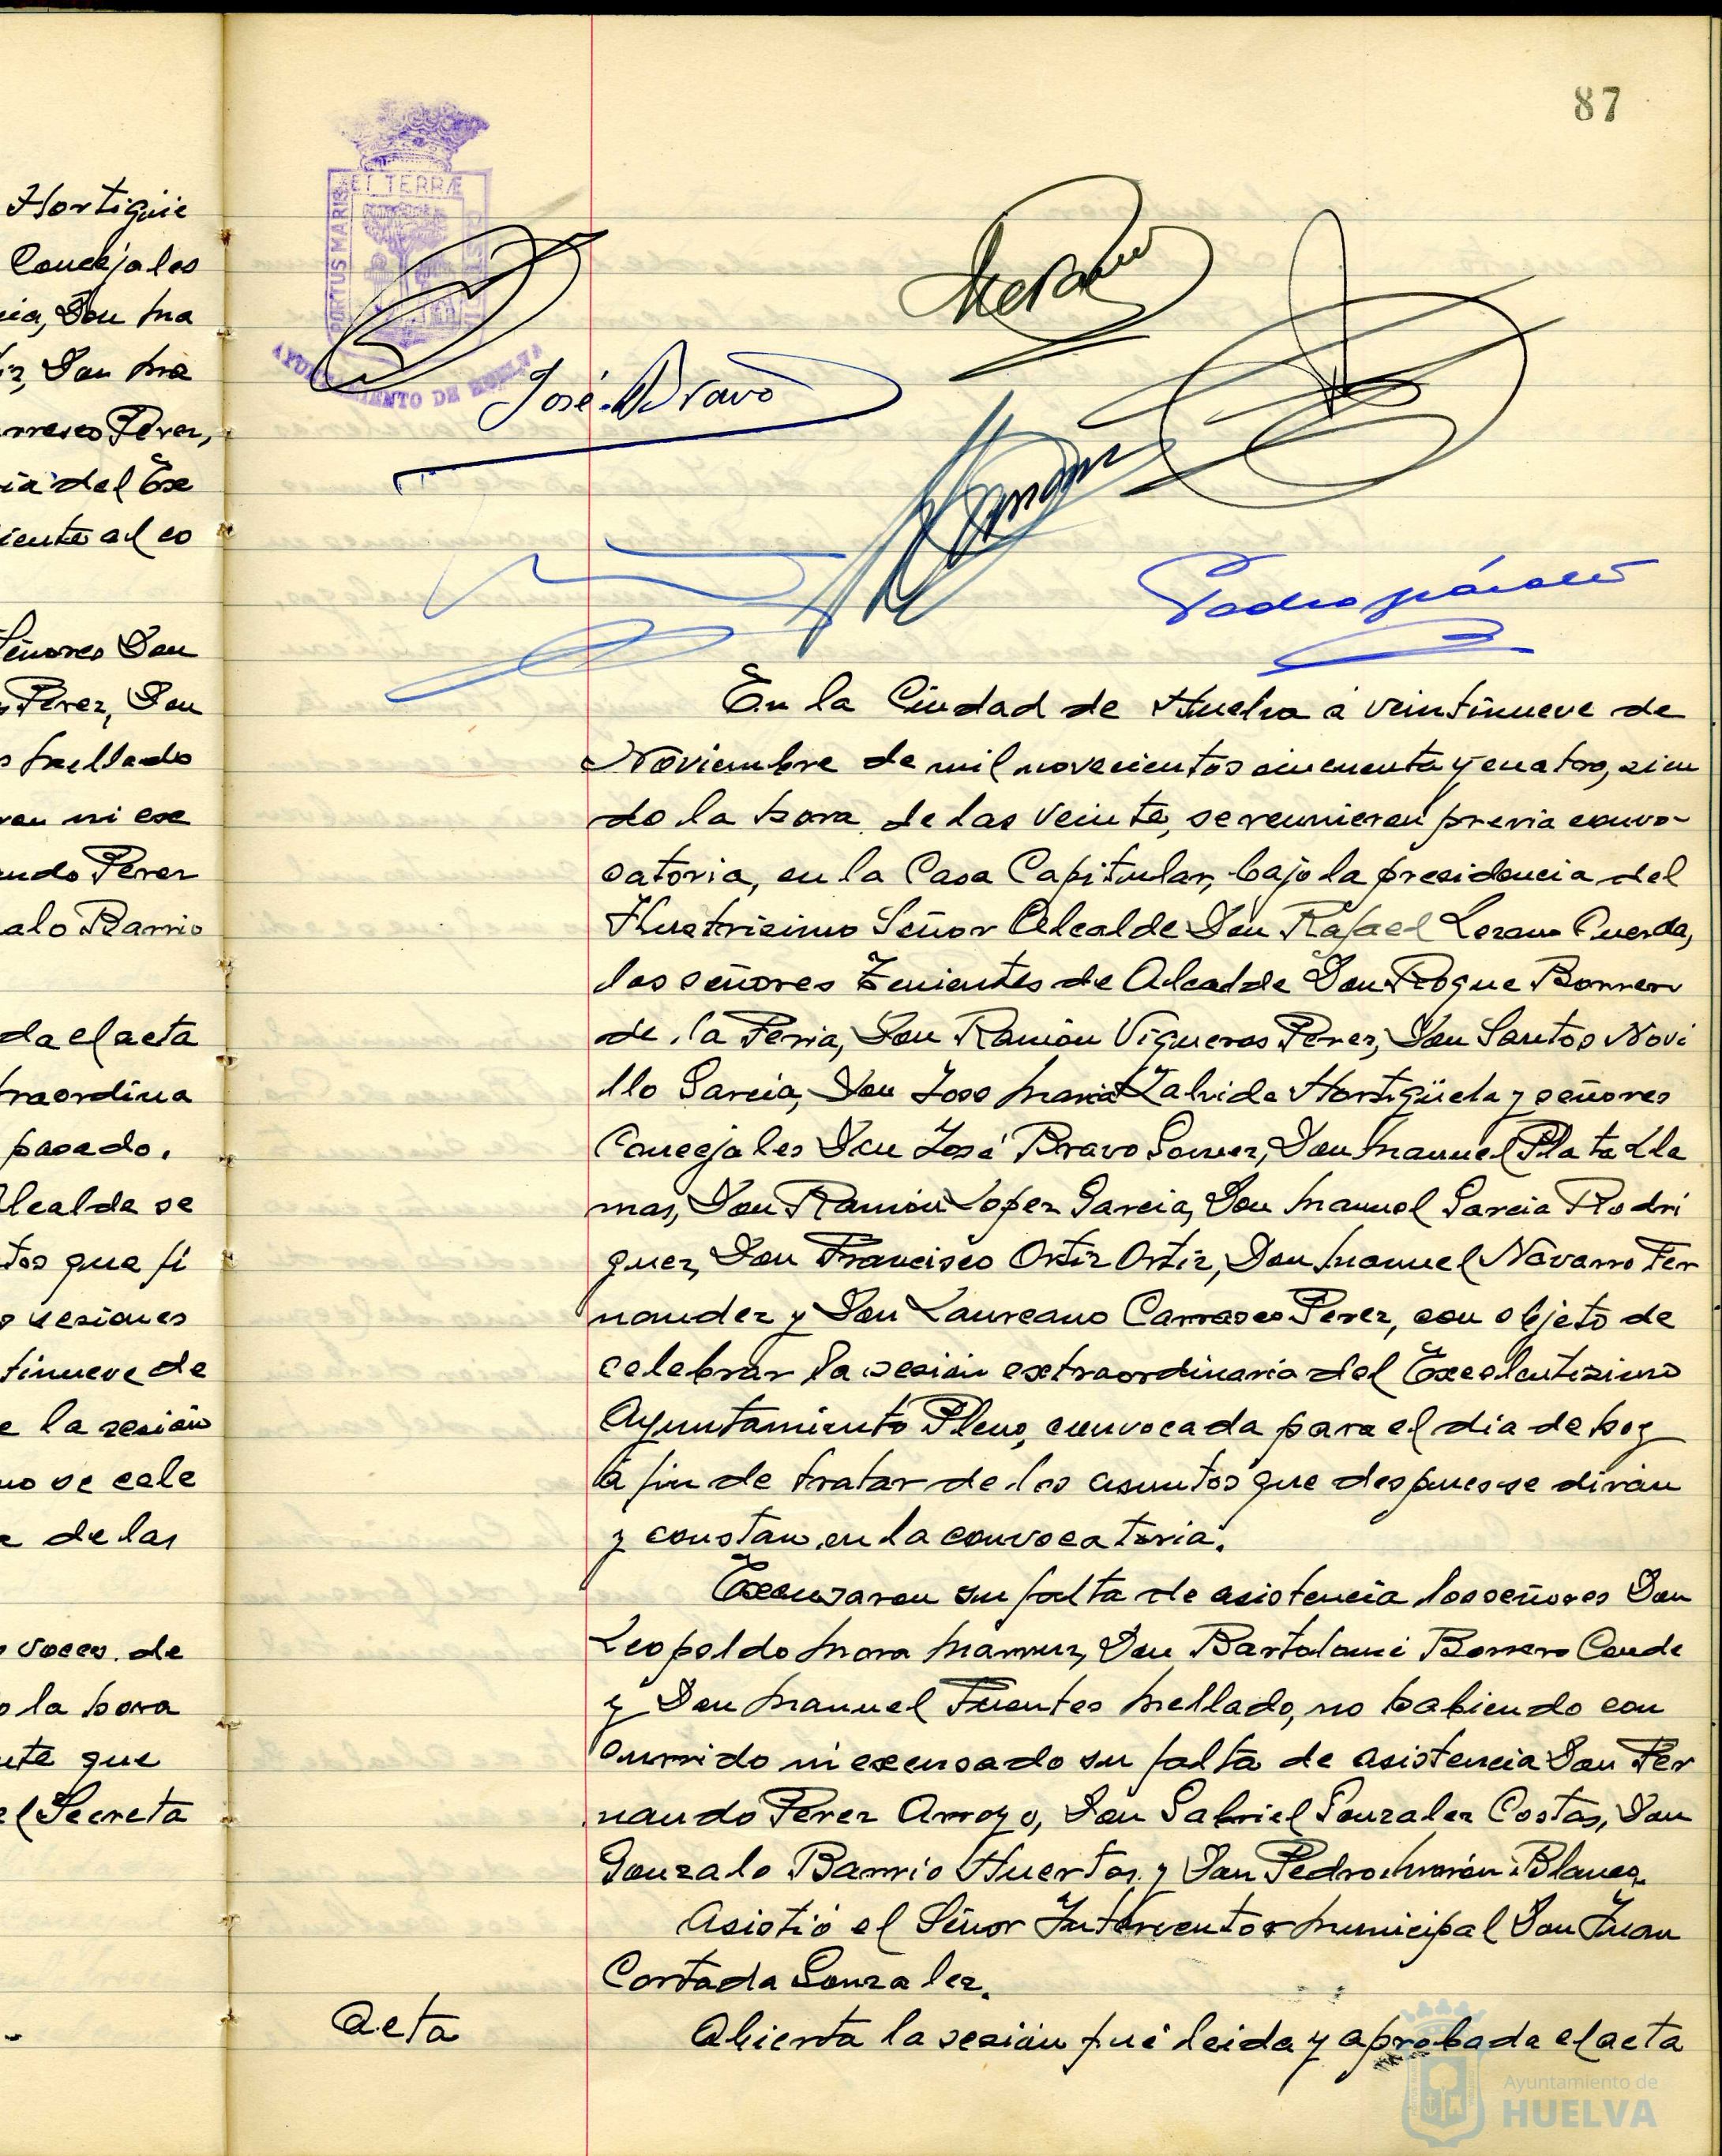 87
Hortigüe
Concejales
cia, Don Ma
iz, Don Ma
rrasco Perez,
ia del Exc
iente al co
Señores Don
Perez, Don
s Mellado
ron ni exc
ando Perez
alo Barrio
da el acta
traordina
pasado.
Alcalde se
tos que fi
sesiones
tinueve de
e la sesión
no se cele
e de las
voces de
o la hora
nte que
el Secreta
ET TERRÆ
PORTUS MARIS
AYUNTAMIENTO DE HUELVA
José Bravo
En la Ciudad de Huelva a veintinueve de
Noviembre de mil novecientos cincuenta y cuatro, sien
do la hora de las veinte, se reunieron previa convo-
catoria, en la Casa Capitular, bajo la presidencia del
Ilustrisimo Señor Alcalde Don Rafael Lozano Cuerda,
los señores Tenientes de Alcalde Don Roque Borrero
de la Feria, Don Ramón Vigueras Perez, Don Santos Novi
llo Garcia, Don Jose Maria Zalvide Hortigüela y señores
Concejales Don José Bravo Gomez, Don Manuel Plata Lla
mas, Don Ramón Lopez Garcia, Don Manuel Garcia Rodri
guez, Don Francisco Ortiz Ortiz, Don Manuel Navarro Fer
nandez y Don Laureano Carrasco Perez, con objeto de
celebrar la sesión extraordinaria del Excelentisimo
Ayuntamiento Pleno, convocada para el dia de hoy
a fin de tratar de los asuntos que despues se dirán
y constan en la convocatoria.
Excusaron su falta de asistencia los señores Don
Leopoldo Mora Don Bartolomé Borrero Conde
y Don Manuel Fuentes Mellado, no habiendo con
currido ni excusado su falta de asistencia Don Fer
nando Perez Arroyo, Don Gabriel Gonzalez Costas, Don
Gonzalo Barrio Huertos y Don Pedro Morón Blanco.
Asistió el Señor Interventor Municipal Don Juan
Cortada Gonzalez.
Acta
Abierta la sesión fué leida y aprobada el acta
Ayuntamiento de
HUELVA